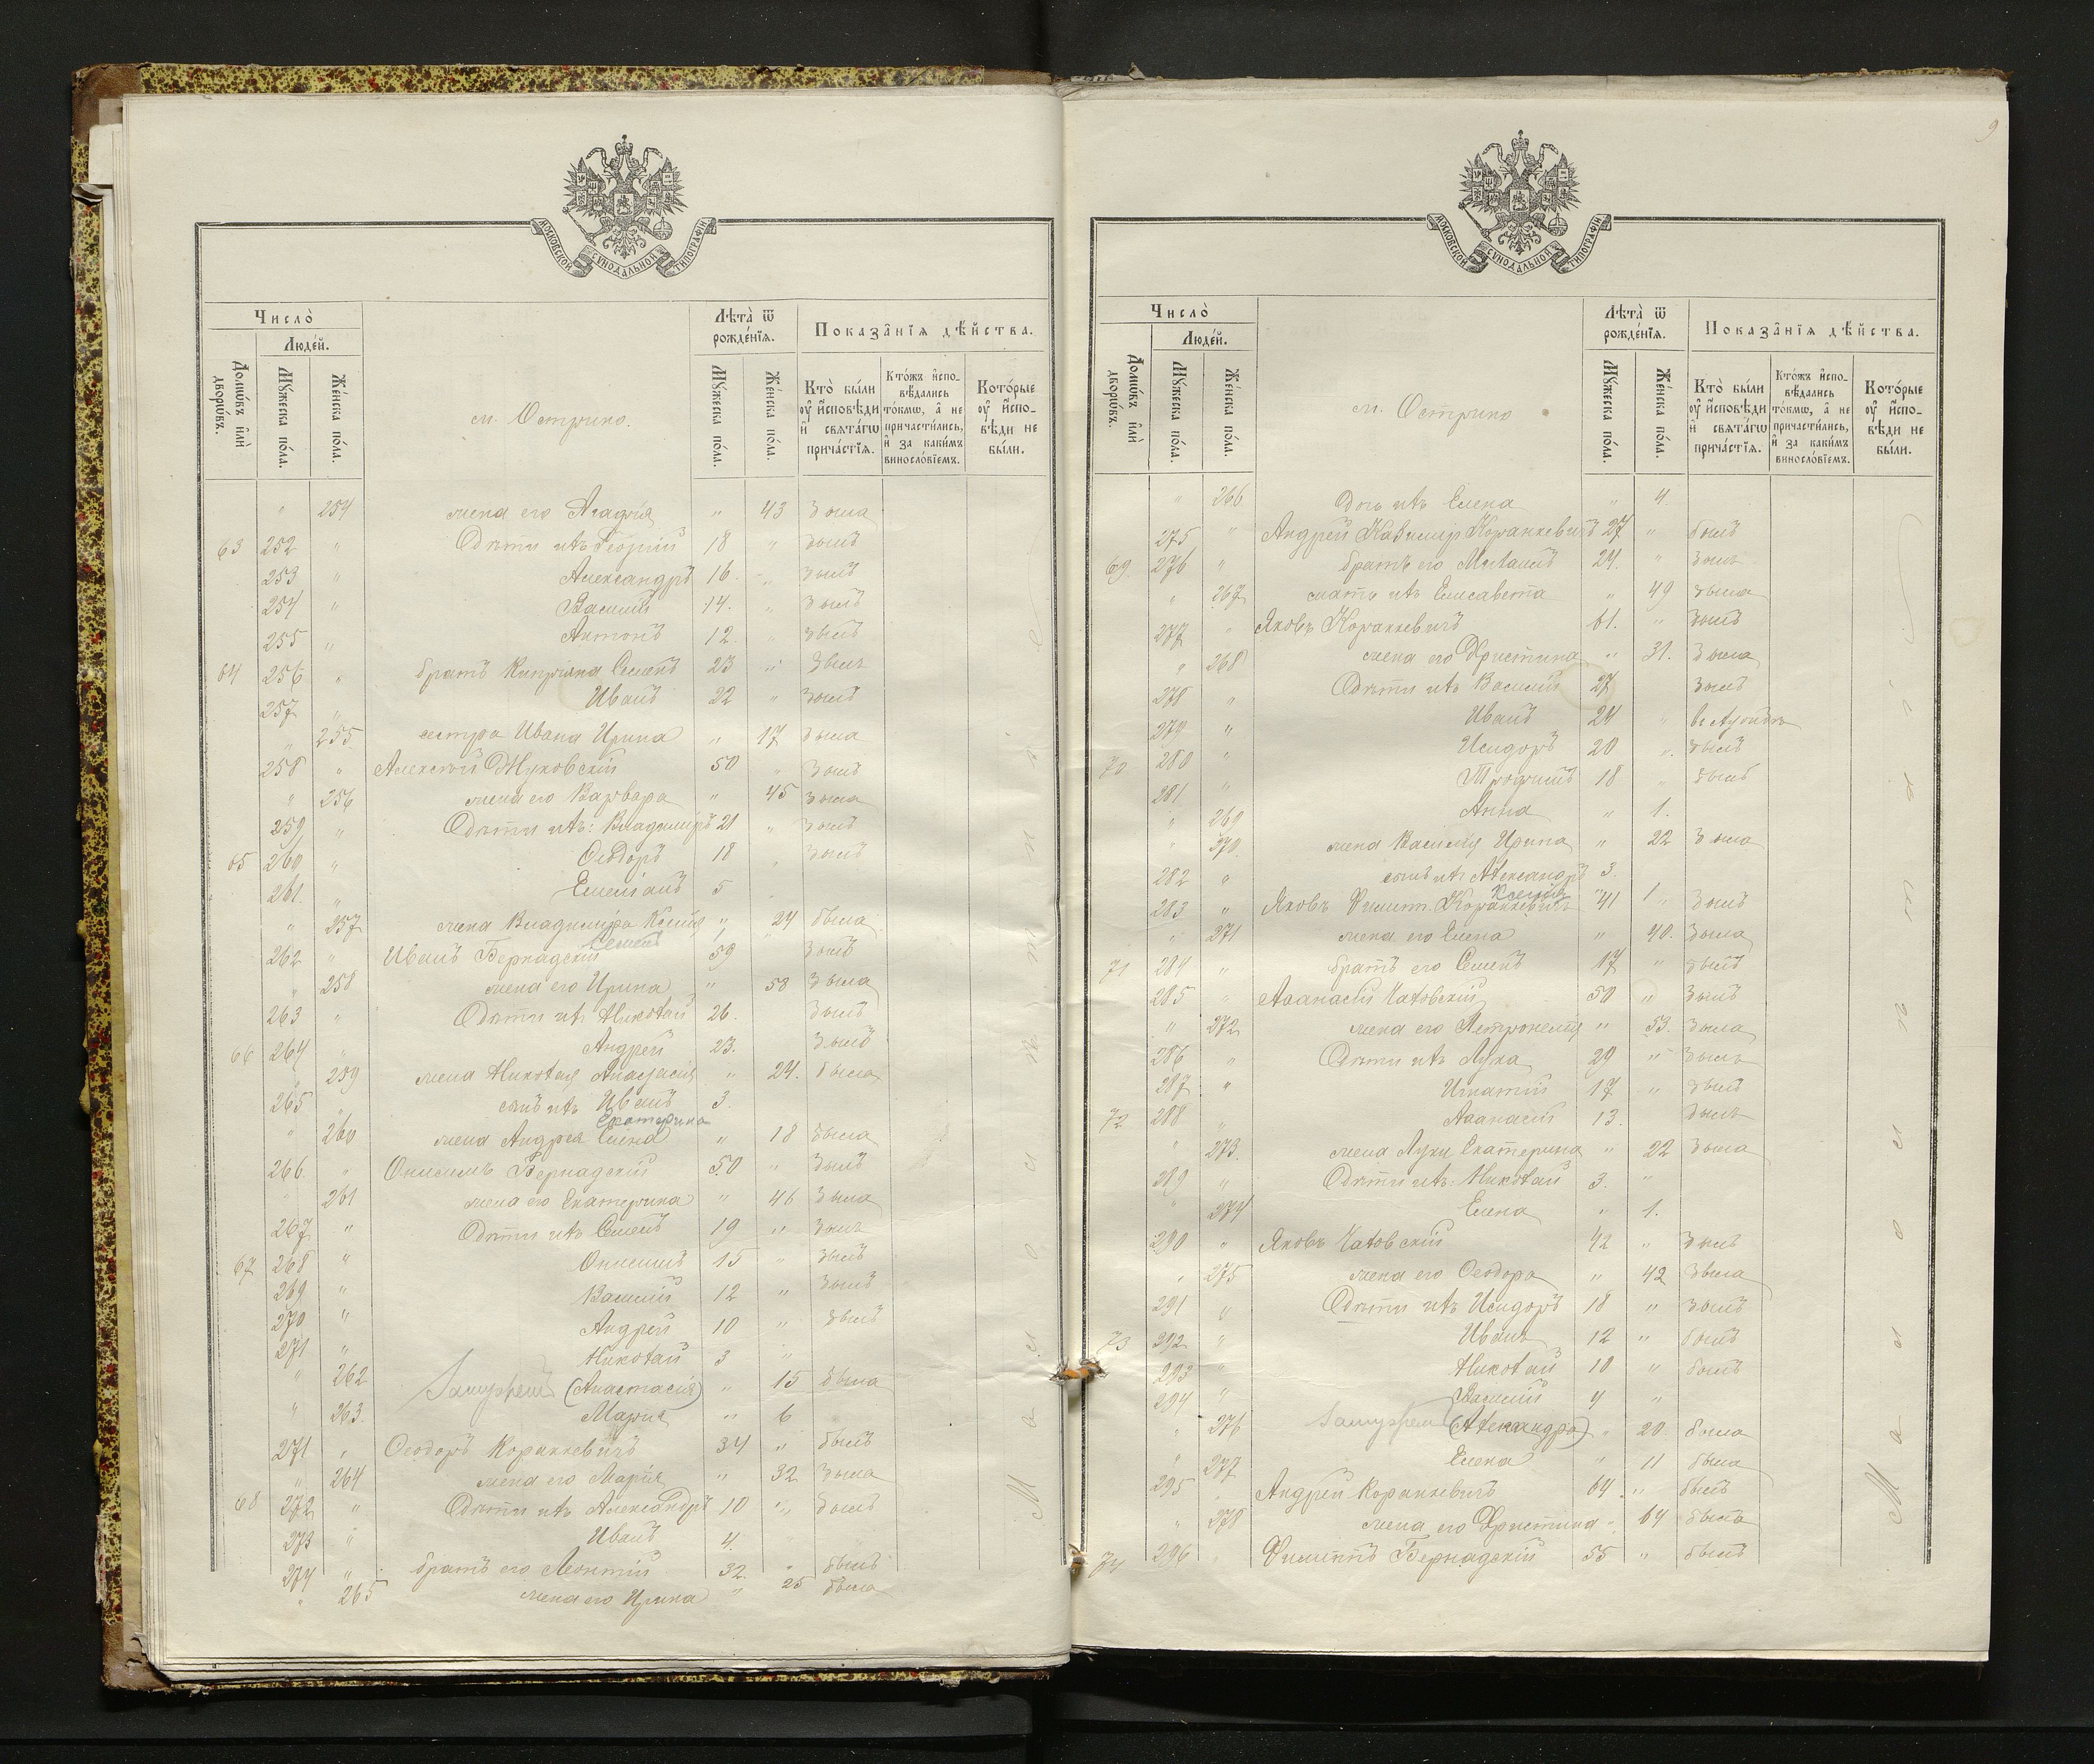 МОСКОВСКОЙ СѴНОДАЛЬНОЙ ТИПОГРАФІИ
Число̀
Людей.
Домѡвъ и҆лѝ дворѡвъ.
Мꙋжеска пола.
Женска пола.
м. Острино.
Лѣта̀ ѿ рожденїя.
Мꙋжеска пола.
Женска пола.
Показанїя дѣйства.
Кто̀ были оу҆ и҆сповѣди и҆ свѧтагѡ причастїѧ.
Ктожъ и҆сповѣдались токмѡ, а҆ не причастились, и҆ за какимъ винословїемъ.
Которые оу҆ и҆споvѣди не были.
" 254 жена его Агафія " 43 была
63 252 " Дѣти ихъ Георгій 18 " былъ
253 " Александръ 16. " былъ
254 " Василій 14. " былъ
255 " Антонъ 12. " былъ
64 256 " братъ Кипріана Семенъ 23 " былъ
257 " Иванъ 22 " былъ
" 255 сестра Ивана Ирина " 17 была
258 " Алексѣй Жуковскій 50 " былъ
" 256 жена его Варвара " 45 была
259 " Дѣти ихъ: Владиміръ 21 " былъ
65 260 " Ѳеодоръ 18 " былъ
261. " Емеліанъ 5
" 257 жена Владиміра Ксенія " 24 была
262 " Иванъ Бернадскій 59 былъ
" 258 жена его Ирина " 58 была
263 " Дѣти ихъ Николай 26. былъ
66 264 " Андрей 23. былъ
" 259 жена Николая Анастасія " 24. была
265 " сынъ ихъ Иванъ 3.
Екатерина
" 260 жена Андрея Елена " 18 была
266. " Онисимъ Бернадскій 50 " былъ
" 261 жена его Екатерина " 46 была
267 " Дѣти ихъ Семенъ 19 " былъ
67 268 " Онисимъ 15 " былъ
269 " Василій 12 " былъ
270 " Андрей 10 " былъ
271 " Николай 3 "
" 262 Замужемъ (Анастасія) " 15 была
" 263. Марія " 6
271 " Ѳеодоръ Коранкевичъ 34 " былъ
" 264 жена его Марія " 32 была
68 272 " Дѣти ихъ Александръ 10 " былъ
273 " Иванъ 4.
274 " братъ его Леонтій 32. " былъ
" 265 жена его Ирина " 25 была
9
МОСКОВСКОЙ СѴНОДАЛЬНОЙ ТИПОГРАФІИ
Число̀
Людей.
Домѡвъ и҆лѝ дворѡвъ.
Мꙋжеска пола.
Женска пола.
м. Острино
Лѣта̀ ѿ рожденїя.
Мꙋжеска пола.
Женска пола.
Показанїя дѣйства.
Кто̀ были оу҆ и҆сповѣди и҆ свѧтагѡ причастїѧ.
Ктожъ и҆сповѣдались токмѡ, а҆ не причастились, и҆ за какимъ винословїемъ.
Которые оу҆ и҆сповѣди не были.
" 266 Дочь ихъ Елена " 4.
275 " Андрей Казиміръ Коранкевичъ 27 " былъ
69. 276 " братъ его Михаилъ 24. " былъ
" 267 мать ихъ Елисавета " 49 была
277 " Яковъ Коранкевичъ 61. " былъ
" 268 жена его Христина " 31. была
278 " Дѣти ихъ Василій 27 былъ
279 " Иванъ 24 "
70 280 " Исидоръ 20 " былъ
281 " Трофимъ 18 " былъ
" 269 Анна " 1.
" 270. жена Василія Ирина " 22 была
282 " сынъ ихъ Александръ 3.
Ксенія 1
283 " Яковъ Филип. Коранкевичъ 41 " былъ
" 271 жена его Елена " 40. была
71 284 " братъ его Семенъ 17 " былъ
285 " Аѳанасій 50 " былъ
" 272 жена его Петронелія " 53. была
286 " Дѣти ихъ Лука 29 " былъ
287 " Игнатій 17 " былъ
72 288 " Аѳанасій 13. былъ
" 273. жена Луки Екатерина " 22 была
289 " Дѣти ихъ: Николай 3. "
" 274 Елена " 1.
290 " Яковъ 42 " былъ
" 275 жена его Ѳеодора " 42 была
291 " Дѣти ихъ Исидоръ 18 " былъ
73 292 " Иванъ 12 " былъ
293 " Николай 10 " былъ
294 " Василій 4 "
" 276 Замужемъ (Александра) " 20. была
" 277 Елена " 11 была
295 " Андрей Коранкевичъ 64 " былъ
" 278 жена его Христина " 64 была
74 296 " Филиппъ Бернадскій 55 " былъ